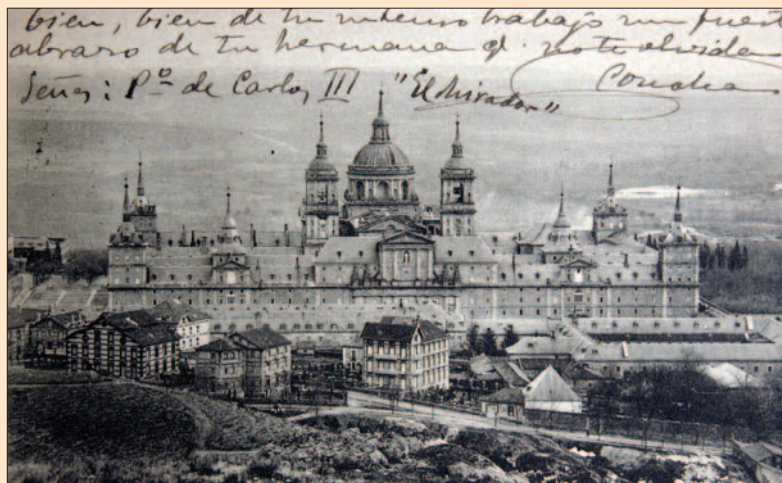 bien, bien de tu intenso trabajo un fuerte
abrazo de tu hermana q. no te olvida
Concha
Señas: Pº de Carlos III "El Mirador"